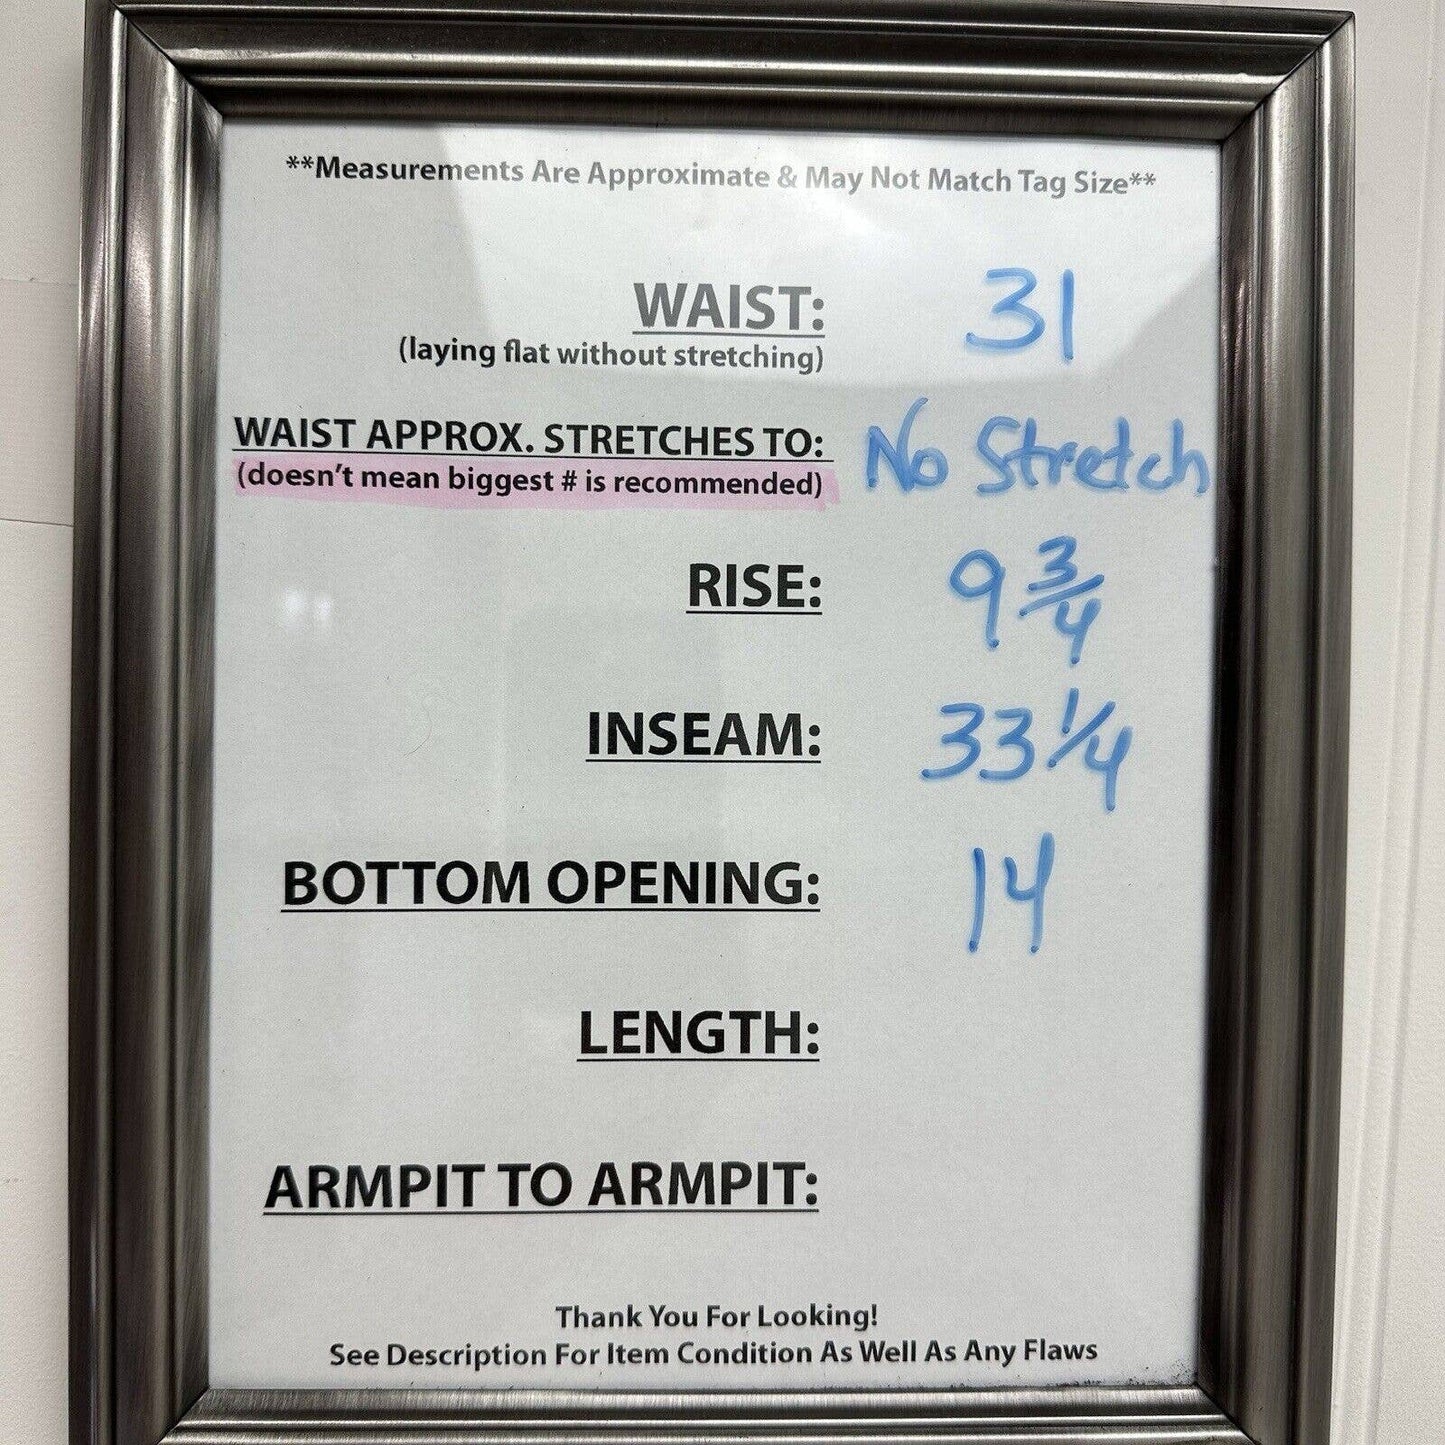 **Measurements Are Approximate & May Not Match Tag Size**
WAIST: 31
(laying flat without stretching)
WAIST APPROX. STRETCHES TO: No Stretch
(doesn't mean biggest # is recommended)
RISE: 9 3/4
INSEAM: 33 1/4
BOTTOM OPENING: 14
LENGTH:
ARMPIT TO ARMPIT:
Thank You For Looking!
See Description For Item Condition As Well As Any Flaws